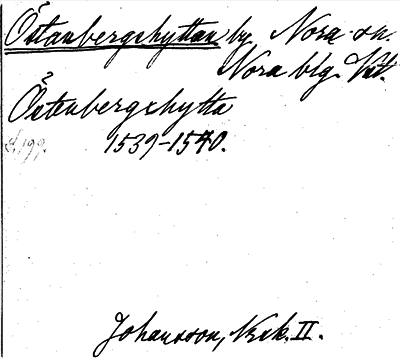 Östanbergshyttan by Nora sn.
Nora blg. Vstm.
Östenbergshytta
s. 199. 1539-1540.
Johansson, Nbk. II.